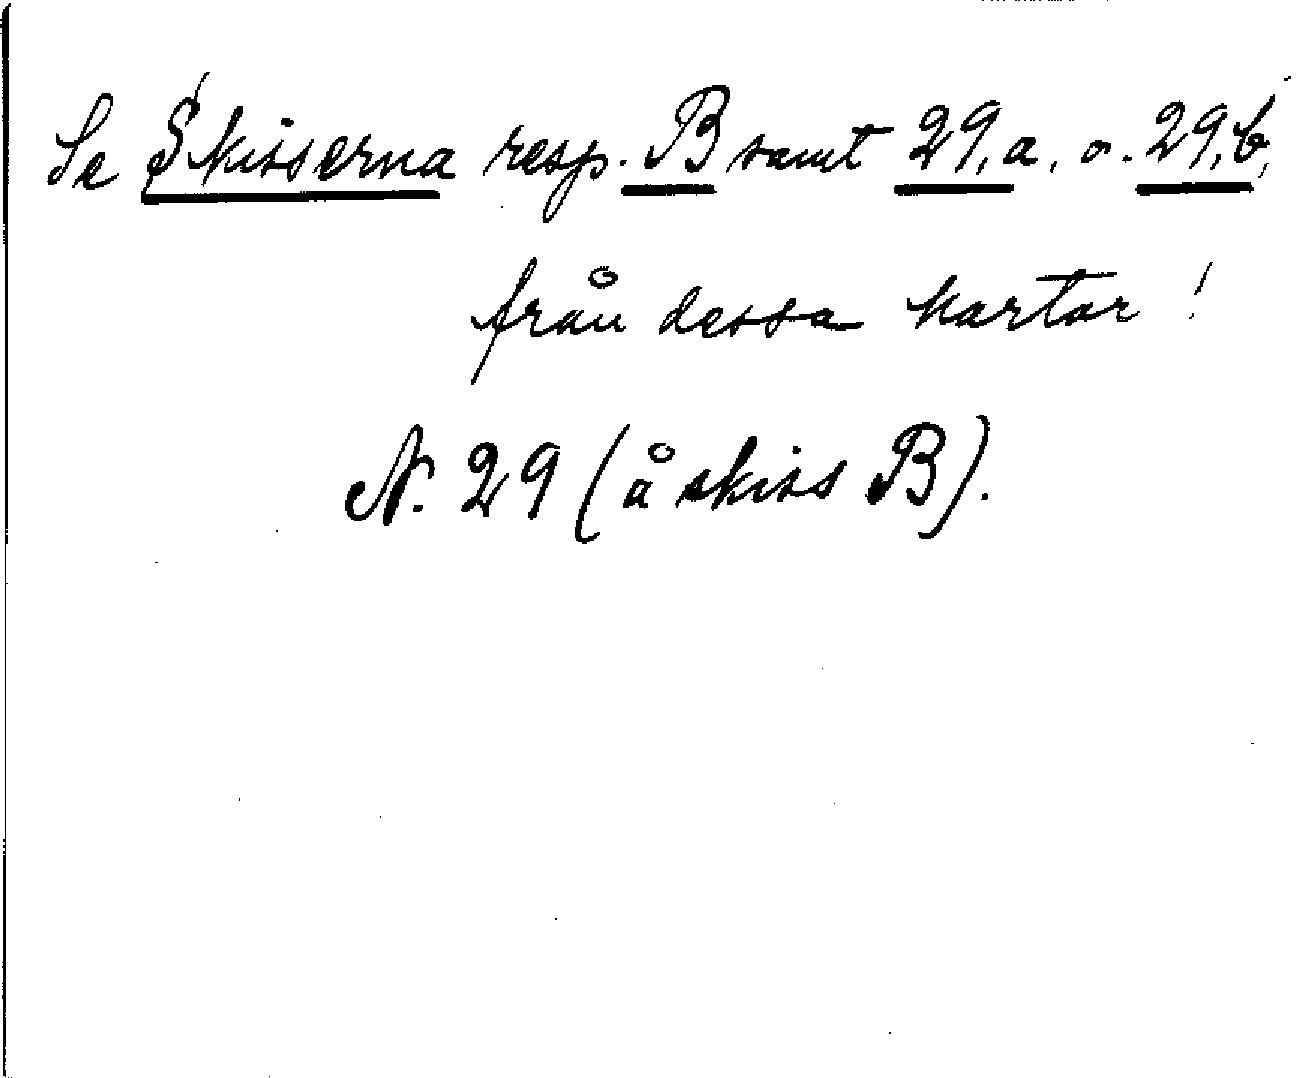 Se Skisserna resp. B samt 29,a, o. 29,b,
från dessa kartor!
N. 29 (å skiss B).